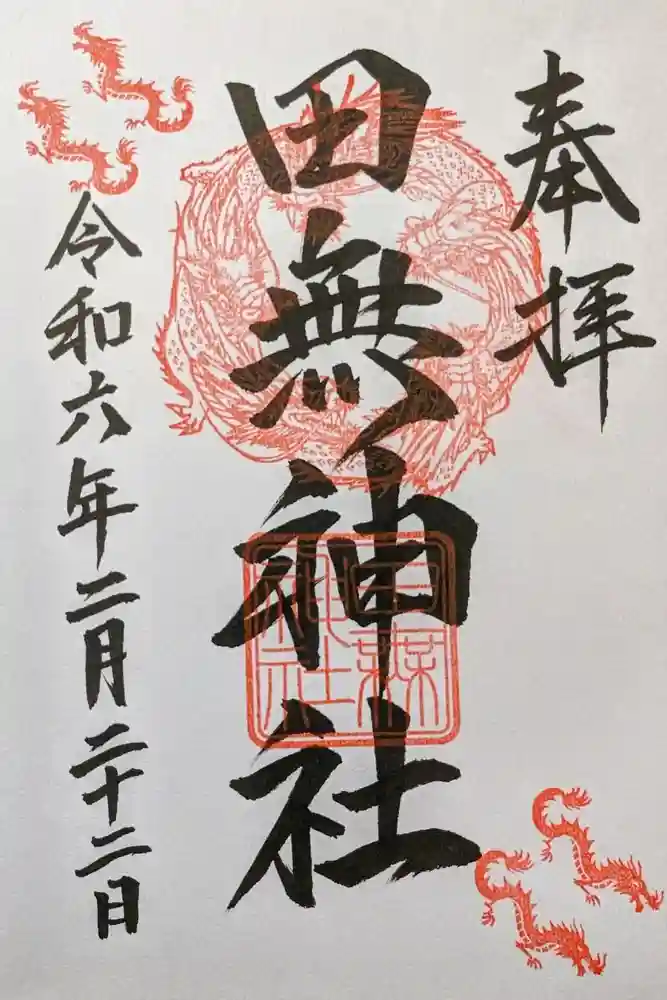 奉拝
田無神社
田無神社
令和六年二月二十二日